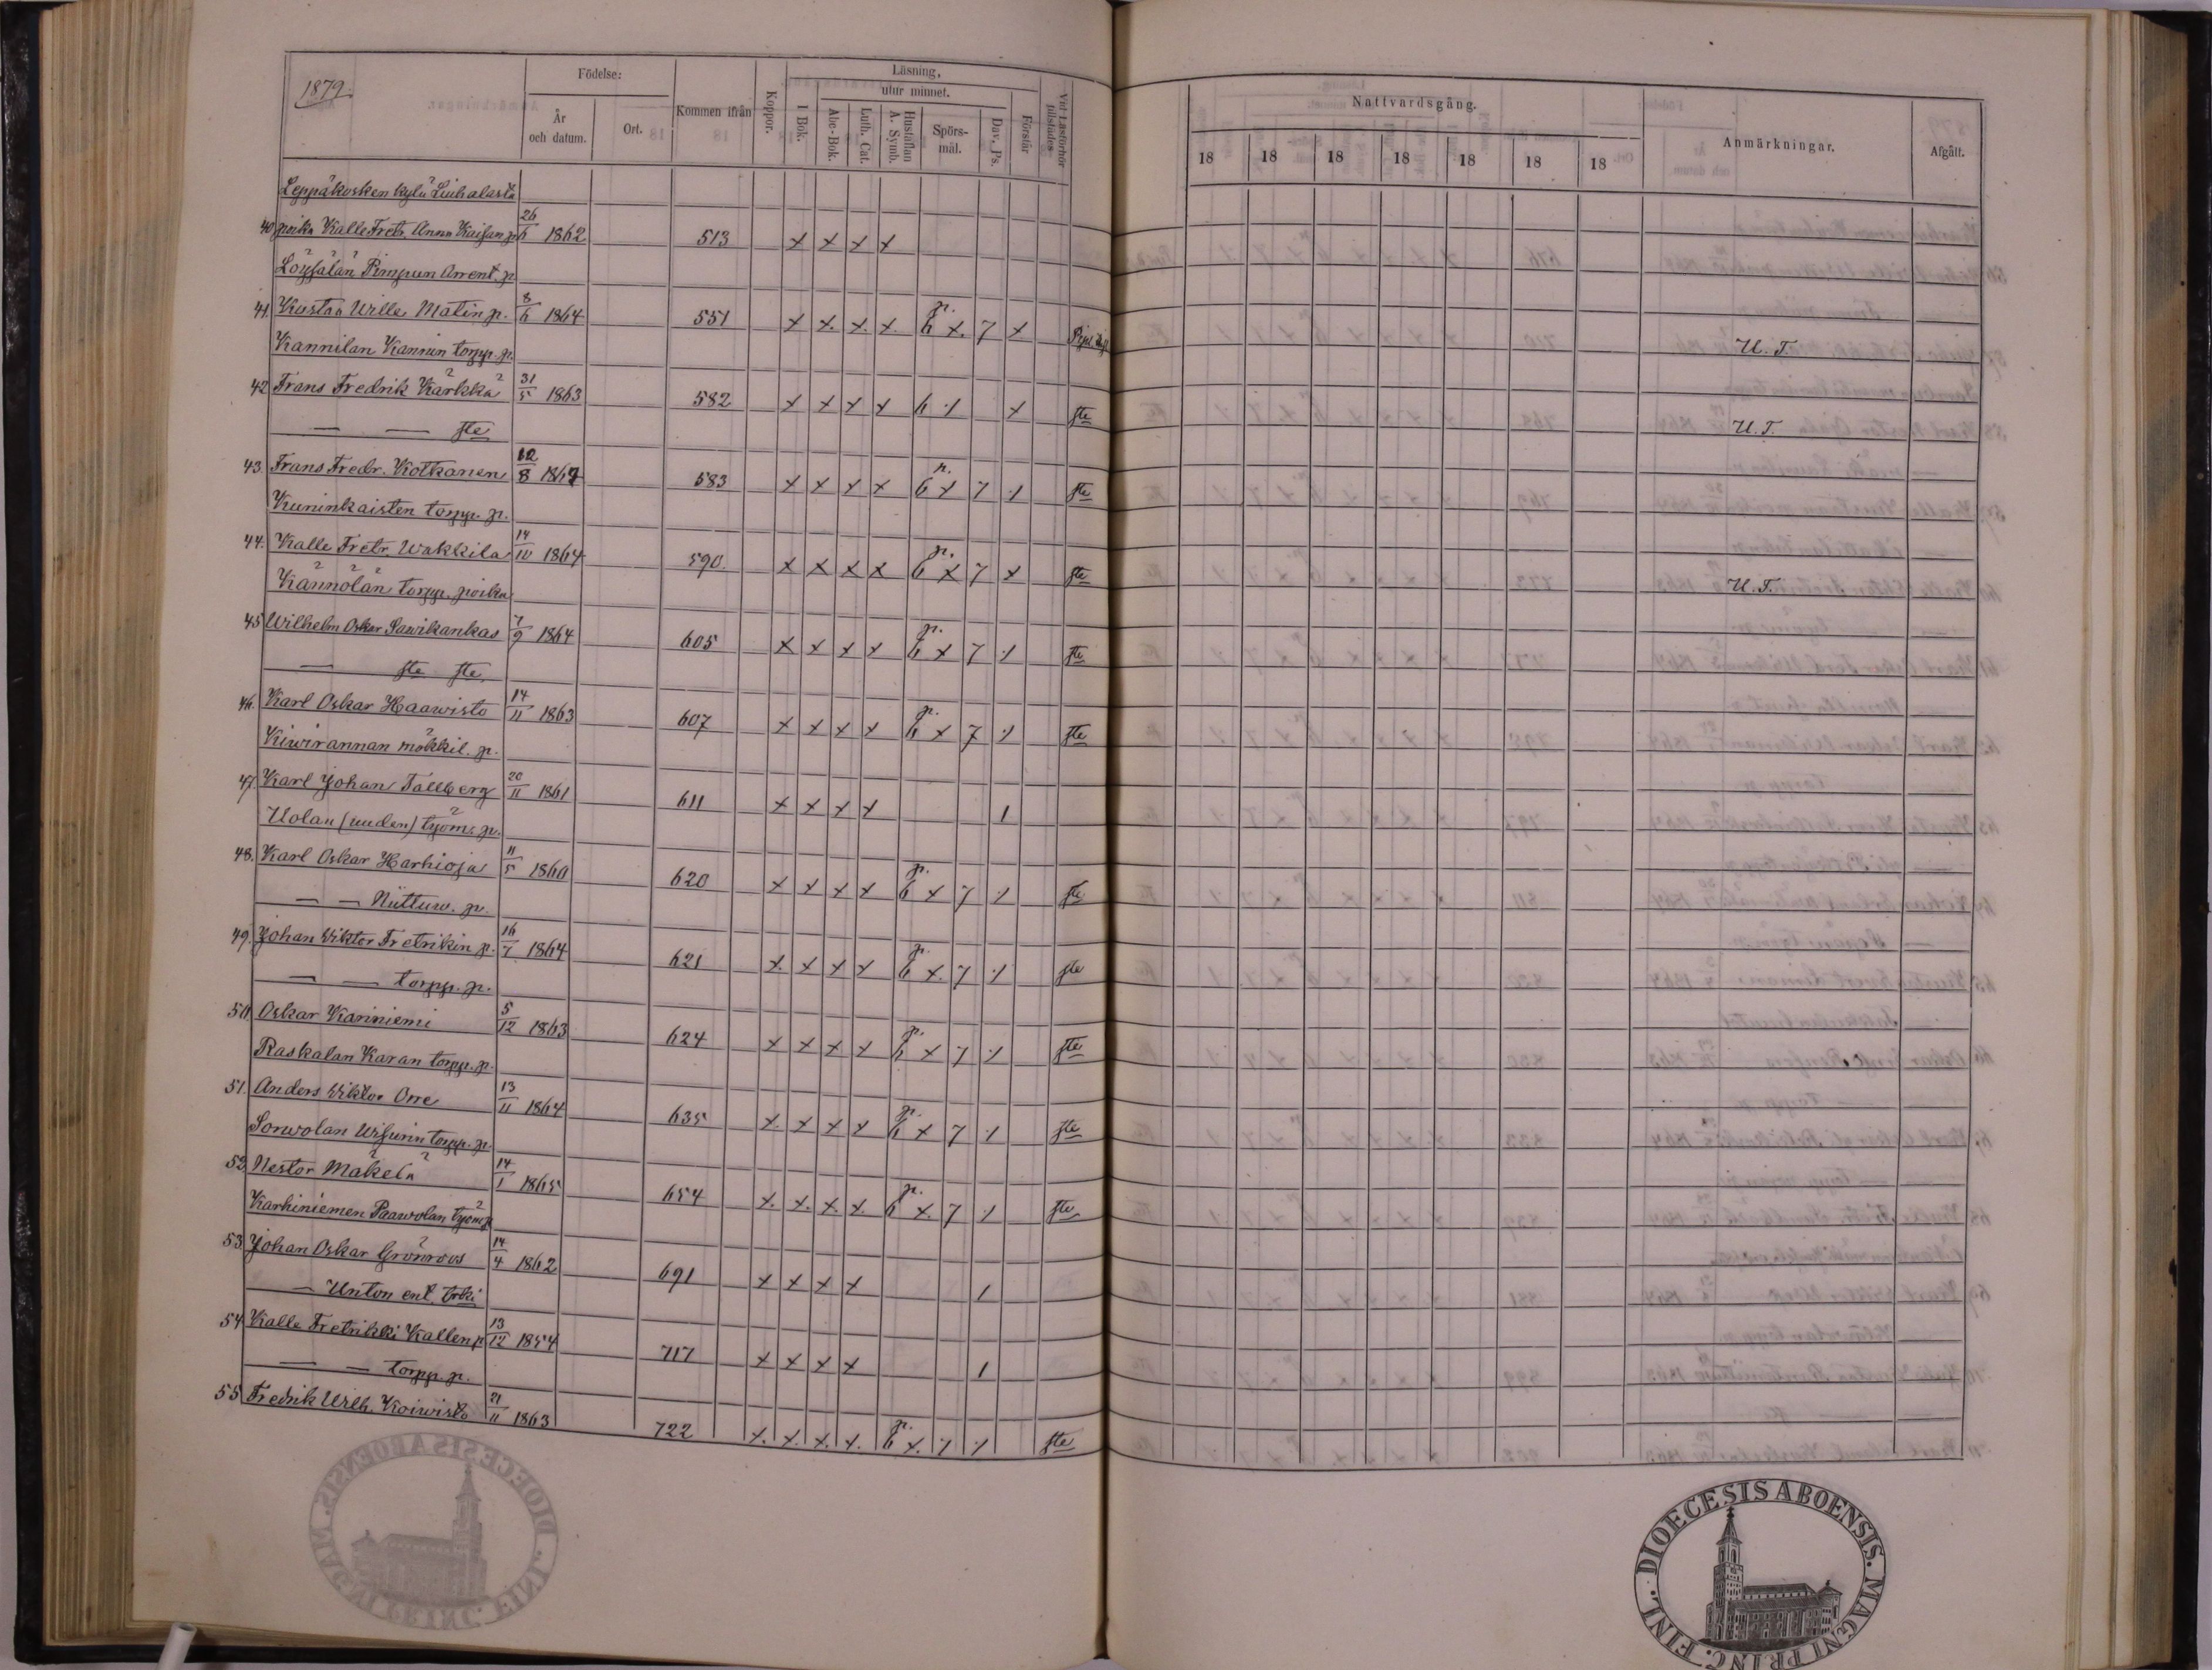 1879.
Födelse:
År och datum.
Ort.
Kommen ifrån
Koppor.
Läsning,
utur minnet.
I Bok.
Abc-Bok.
Luth. Cat.
Hustaflan A. Symb.
Spörs-mål.
Dav. Ps.
Förstår
Vid Läsförhör tillstädes
Nattvardsgång.
18 18 18 18 18 18 18
Anmärkningar.
Afgått.
Leppäkosken kylä
40 poika Kalle Fretr. Anna Kaisan p. 26/6 1862 513 x x x x
Löysälän Pimpun Arrent. p.
41. Kustaa Wille Matin p. 8/6 1864 551 x x. x. x. p. 6 x. 7 x
Kannilan Kannin torpp. p. U. T.
42 Frans Fredrik Karkka 31/5 1863 582 x x x x 6 1 x ste
— — ste U. T.
43. Frans Fredr. Kotkanen 12/8 1864 583 x x x x p. 6 x 7 1 ste
Kuninkaisten torpp. p.
44. Kalle Fretr. Wakkila 14/10 1864 590. x x x x p. 6 x 7 x ste
Kännölän torpp. poika U. T.
45 Wilhelm Oskar Sawikankas 7/9 1864 605 x x x x p. 6 x 7 1 ste
— ste ste
46. Karl Oskar Haawisto 14/11 1863 607 x x x x p. 6 x 7 1 ste
Kiwirannan mökkil. p.
47. Karl Johan Tällberg 20/11 1861 611 x x x x 1
Uolan (uuden) työm. p.
48. Karl Oskar Harhioja 11/5 1860 620 x x x x p. 6 x 7 1 ste
— — Niittuw. p.
49. Johan Wiktor Fretrikin p. 16/7 1864 621 x. x x x p. 6 x. 7 1 ste
— — torpp. p.
50. Oskar Kariniemi 5/12 1863 624 x x x x p. 6 x 7 1 ste
Raskalan Karan torpp. p.
51. Anders Wiktor Orre 13/11 1864 635 x. x x x p. 6 x 7 1 ste
Sorwolan torpp. p.
52. Nestor Mäkelä 14/1 1865 654 x. x. x. x. p. 6 x. 7 1 ste
Karhiniemen Paawolan työm. p.
53. Johan Oskar Grönroos 14/4 1862 691 x x x x 1
— Unton ent. trki
54 Kalle Fretrikki Kallen p. 13/12 1854 717 x x x x 1
— — torpp. p.
55 Fredrik Wilh. Koiwisto 21/11 1863 722 x. x. x. x. p. 6 x. 7 1 ste
DIOECESIS ABOENSIS. MAGNI PRINC. FINL.